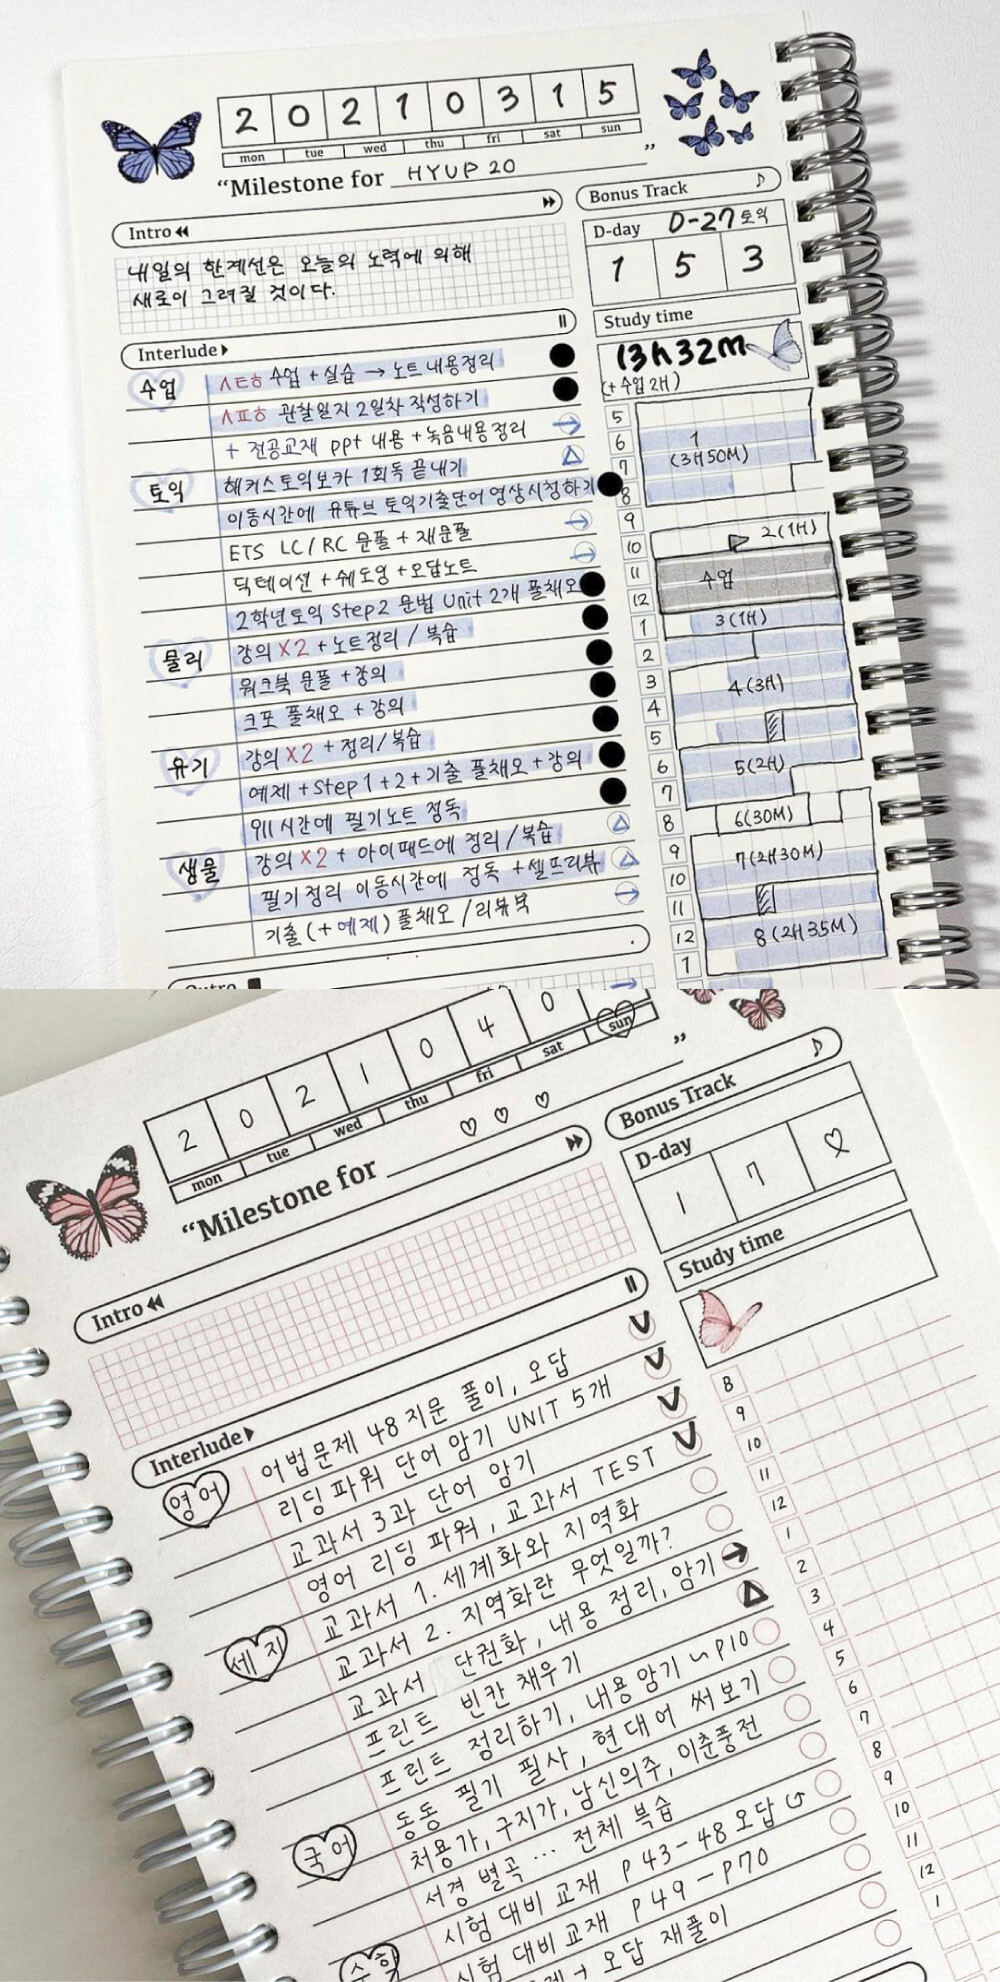 2 0 2 1 0 3 1 5
mon tue wed thu fri sat sun
“Milestone for HYUP 20 ”
Intro
내일의 한계선은 오늘의 노력에 의해
새로이 그려질 것이다.
Interlude
수업 ㅅㅌㅎ 수업 + 실습 → 노트내용정리
ㅅㅍㅎ 관찰일지 2일차 작성하기
+ 전공교재 ppt 내용 + 녹음내용정리
토익 해커스토익보카 1회독 끝내기
이동시간에 유튜브 토익기출단어영상시청하기
ETS LC/RC 문풀 + 재문풀
딕테이션 + 쉐도잉 + 오답노트
2학년토익 Step2 문법 Unit 2개 풀채오
물리 강의 X2 + 노트정리 / 복습
워크북 문풀 + 강의
크포 풀채오 + 강의
유기 강의 X2 + 정리/복습
예제 + Step1+2+기출 풀채오 + 강의
911시간에 필기노트 정독
생물 강의 X2 + 아이패드에 정리 / 복습
필기정리 이동시간에 정독 + 셀프리뷰
기출(+예제) 풀채오 /리뷰북
Outro
Bonus Track
D-day D-27 토익
1 5 3
Study time
13h 32M
(+수업 2H)
5
6
7
8
9
10
11
12
1
2
3
4
5
6
7
8
9
10
11
12
1
1
(3H50M)
2(1H)
수업
3(1H)
4(3H)
5(2H)
6(30M)
7(2H30M)
8(2H35M)
2 0 2 1 0 4 0
mon tue wed thu fri sat sun
“Milestone for ♡ ♡ ♡ ”
Intro
Interlude
영어 어법문제 48지문 풀이, 오답
리딩파워 단어 암기 UNIT 5개
교과서 3과 단어 암기
영어 리딩 파워, 교과서 TEST
세지 교과서 1. 세계화와 지역화
교과서 2. 지역화란 무엇일까?
교과서 단권화, 내용 정리, 암기
프린트 빈칸 채우기
프린트 정리하기, 내용암기 ~ P10
국어 동동 필기 필사, 현대어 써보기
처용가, 구지가, 남신의주, 이춘풍전
서경 별곡 … 전체 복습
시험 대비 교재 P43-48 오답
수학 시험 대비 교재 P49-P70
+ 오답 재풀이
Bonus Track
D-day
1 7 ♡
Study time
8
9
10
11
12
1
2
3
4
5
6
7
8
9
10
11
12
1